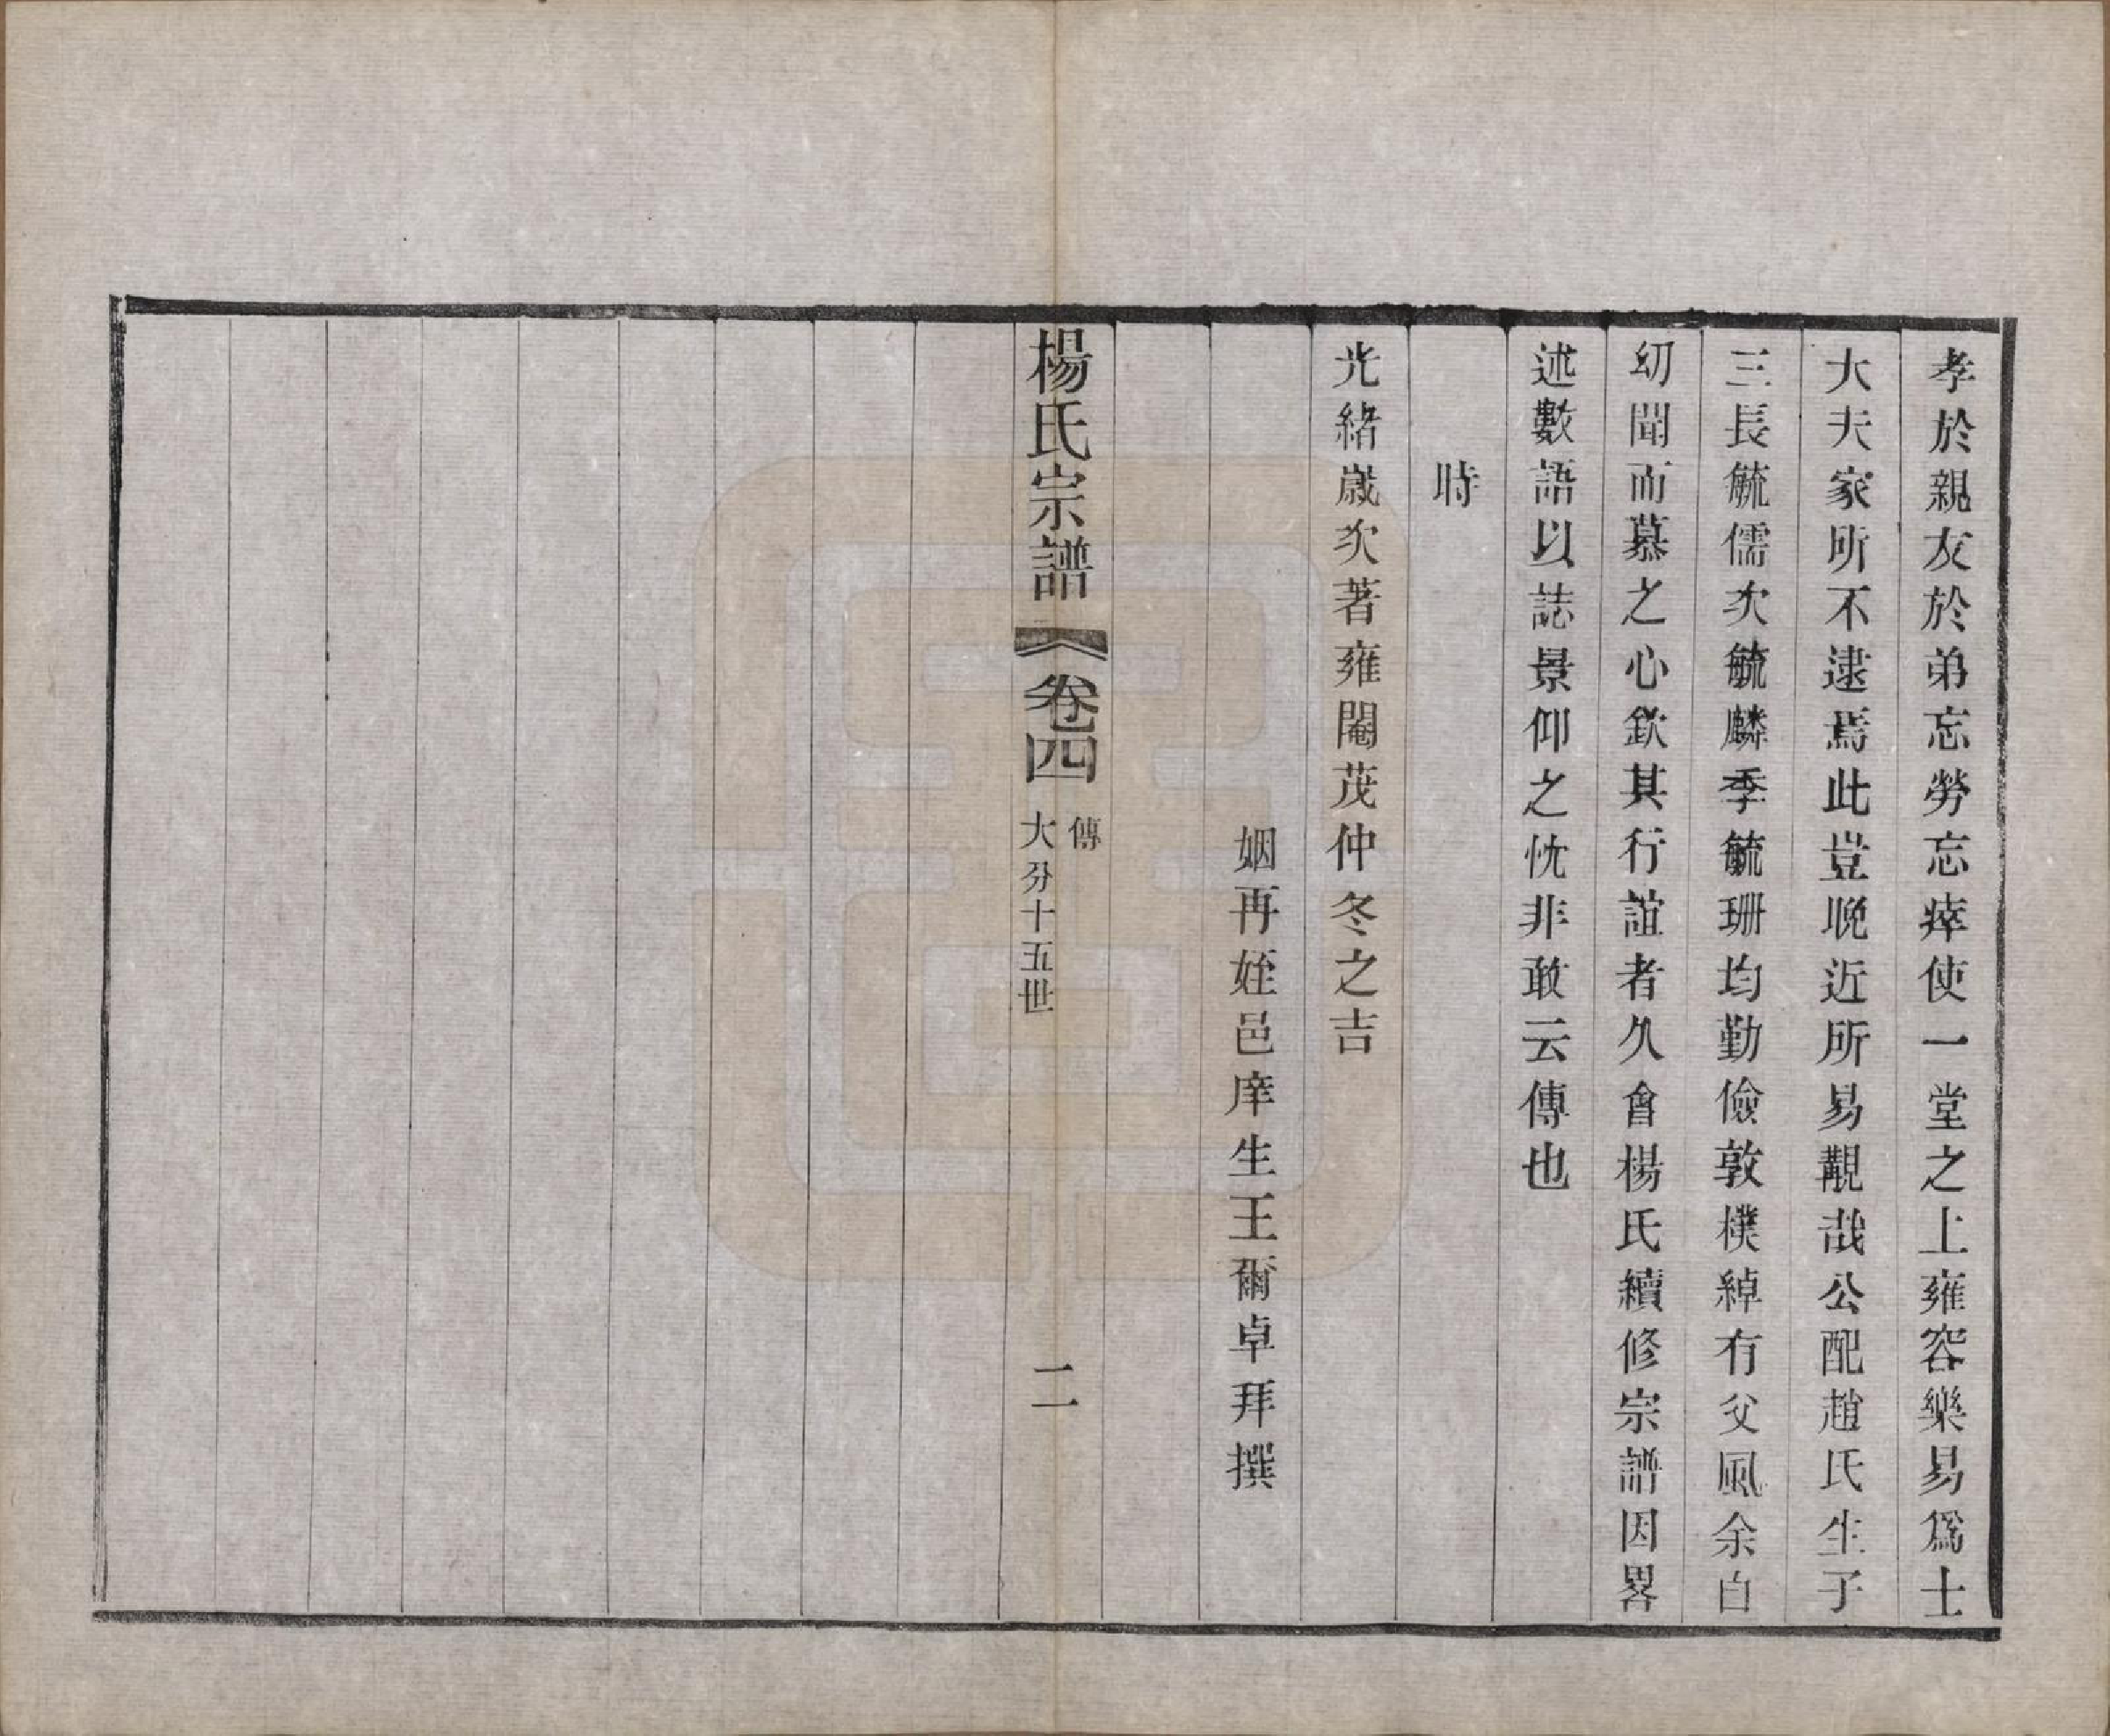 孝於親友於弟忘勞忘瘁使一堂之上雍容樂易爲士
大夫家所不逮焉此豈晚近所易觀哉公配趙氏生子
三長毓儒次毓麟季毓珊均勤儉敦樸綽有父風余自
幼聞而慕之心欽其行誼者久會楊氏續修宗譜因畧
述數語以誌景仰之忱非敢云傳也
時
光緒嵗次著雍閹茂仲冬之吉
姻再姪邑庠生王爾卓拜撰
楊氏宗譜 卷四 傳 大分十五世 二